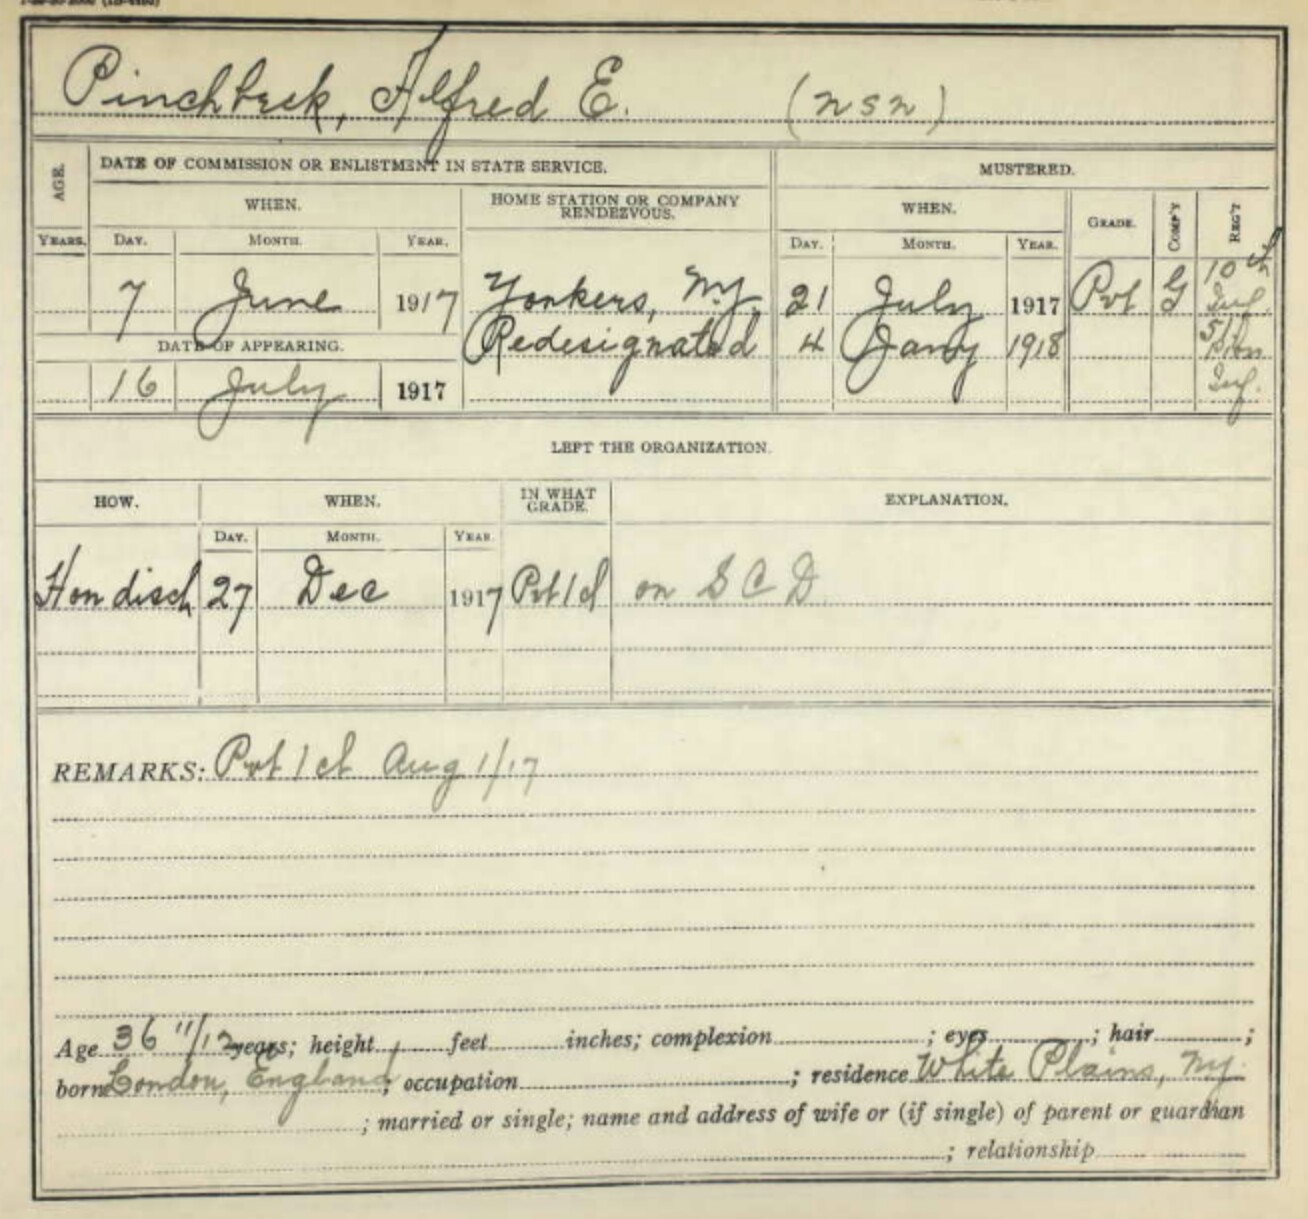 Pinchbeck, Alfred E. (nsn)
AGE. DATE OF COMMISSION OR ENLISTMENT IN STATE SERVICE. MUSTERED.
WHEN. HOME STATION OR COMPANY RENDEZVOUS. WHEN. GRADE. COMP'Y REG'T
YEARS. DAY. MONTH. YEAR. DAY. MONTH. YEAR.
7 June 1917 Yonkers, N.Y. 21 July 1917 Pvt G 10th Inf.
DATE OF APPEARING. Redesignated 4 Jany 1918 51 Pion Inf.
16 July 1917
LEFT THE ORGANIZATION.
HOW. WHEN. IN WHAT GRADE. EXPLANATION.
DAY. MONTH. YEAR.
Hon disch 27 Dec 1917 Pvt 1cl on S C D
REMARKS: Pvt 1 cl Aug 1/17
Age 36 11/12 years; height feet inches; complexion ; eyes ; hair ;
born London, England; occupation ; residence White Plains, N.Y.
; married or single; name and address of wife or (if single) of parent or guardian
; relationship